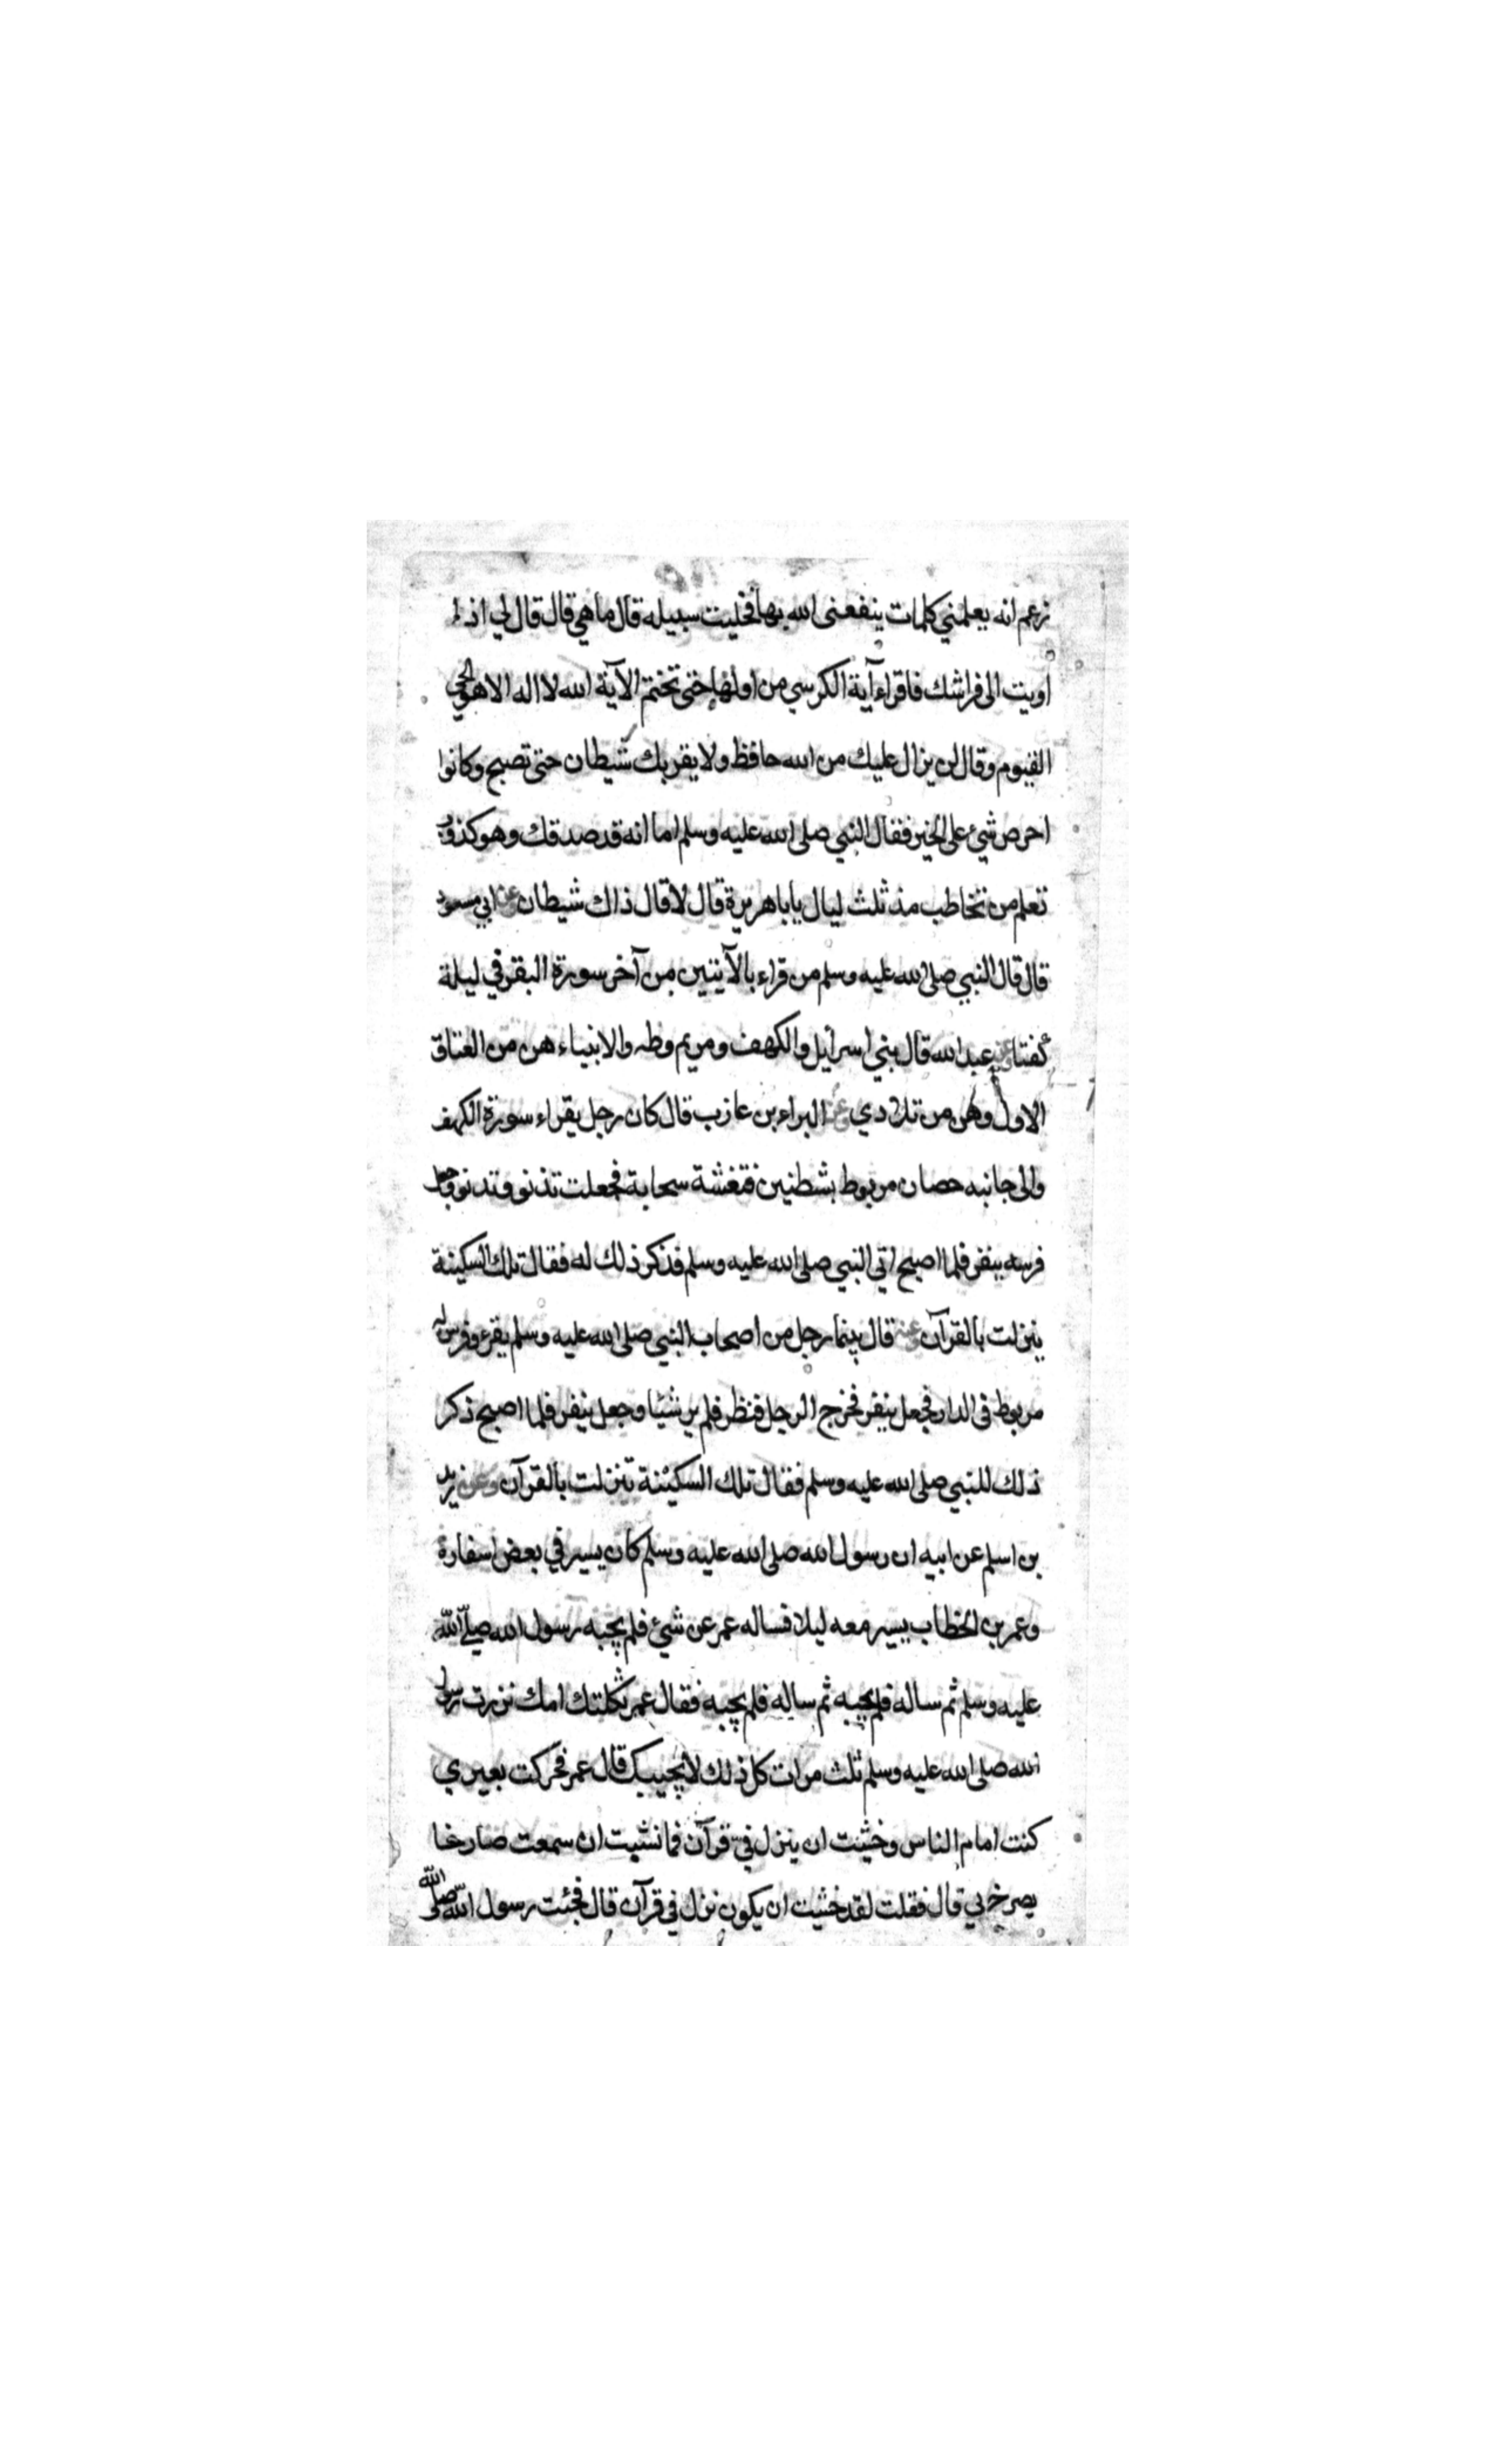 زعم انه يعلمني كلمات ينفعنى الله بها فخليت سبيله قال ما هي قال قال لي اذا
اويت الى فراشك فاقراء آية الكرسي من اولها حتى تختم الآية الله لا اله الا هو الحي
القيوم وقال لن يزال عليك من الله حافظ ولا يقربك شيطان حتى تصبح وكانوا
احرص شيئ على الخير فقال النبي صلى الله عليه وسلم اما انه قد صدقك وهو كذوب
تعلم من تخاطب مذ ثلث ليال يابا هريرة قال لا قال ذاك شيطان عن ابي مسعود
قال قال النبي صلى الله عليه وسلم من قراء بالآيتين من آخر سورة البقر في ليلة
كفتا عن عبد الله قال بني اسرائيل والكهف ومريم وطه والانبياء هن من العتاق
الاول وهن من تلادي عن البراء بن عازب قال كان رجل يقراء سورة الكهف
والى جانبه حصان مربوط بشطنين فتغشة سحابة فجعلت تدنو وتدنو وجعل
فرسه ينفر فلما اصبح اتى النبي صلى الله عليه وسلم فذكر ذلك له فقال تلك السكينة
ينزلت بالقرآن عنه قال بينما رجل من اصحاب النبي صلى الله عليه وسلم يقرء وفرس له
مربوط فى الدار فجعل ينفر فخرج الرجل فنظر فلم ير شيئا وجعل ينفر فلما اصبح ذكر
ذلك للنبي صلى الله عليه وسلم فقال تلك السكينة تنزلت بالقرآن وعن زيد
بن اسلم عن ابيه ان رسول الله صلى الله عليه وسلم كان يسير في بعض اسفاره
وعمر بن الخطاب يسير معه ليلا فساله عمر عن شيئ فلم يجبه رسول الله صلى الله
عليه وسلم ثم ساله فلم يجبه ثم ساله فلم يجبه فقال عمر ثكلتك امك نزرت رسول
الله صلى الله عليه وسلم ثلث مرات كل ذلك لا يجيبك قال عمر فحركت بعيري
كنت امام الناس وخشيت ان ينزل في قرآن فما نشيت ان سمعت صارخا
يصرخ بي قال فقلت لقد خشيت ان يكون نزل في قرآن قال فجئت رسول الله صلى الله